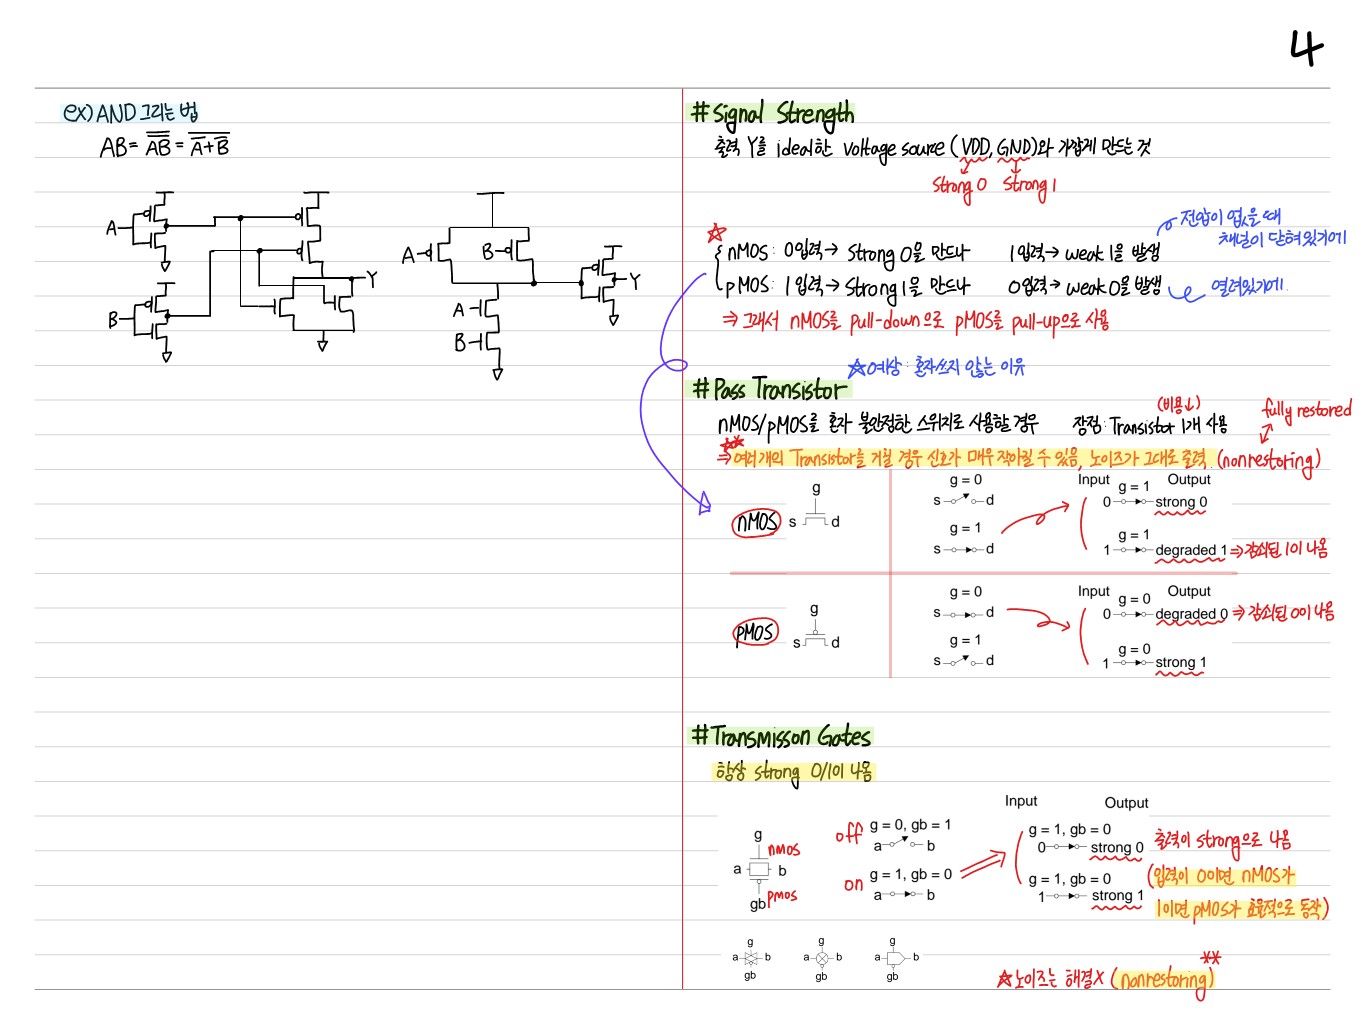 4
ex) AND 그리는 법
AB = \overline{\overline{AB}} = \overline{\overline{A}+\overline{B}}
A
B
Y
A
B
A
B
Y
# Signal Strength
출력 Y를 ideal한 voltage source (VDD, GND)와 가깝게 만드는 것
Strong 0 Strong 1
☆
nMOS: 0입력→ Strong 0을 만드나 1입력→ weak 1을 발생
전압이 없을 때
채널이 닫혀있기에
pMOS: 1입력→ Strong 1을 만드나 0입력→ weak 0을 발생
열려있기에.
⇒ 그래서 nMOS를 pull-down으로 pMOS를 pull-up으로 사용
☆예상: 혼자쓰지 않는 이유
# Pass Transistor
nMOS/pMOS를 혼자 불안정한 스위치로 사용할 경우 장점: Transistor 1개 사용
(비용↓)
fully restored
⇒ 여러개의 Transistor를 거칠 경우 신호가 매우 작아질 수 있음, 노이즈가 그대로 출력. (nonrestoring)
nMOS
g
s d
g = 0
s d
g = 1
s d
Input Output
g = 1
0 strong 0
g = 1
1 degraded 1 ⇒ 감쇠된 1이 나옴
pMOS
g
s d
g = 0
s d
g = 1
s d
Input Output
g = 0
0 degraded 0 ⇒ 감쇠된 0이 나옴
g = 0
1 strong 1
# Transmisson Gates
항상 strong 0/1이 나옴
g
nmos
a b
gb pmos
off g = 0, gb = 1
a b
on g = 1, gb = 0
a b
Input Output
g = 1, gb = 0
0 strong 0
g = 1, gb = 0
1 strong 1
출력이 strong으로 나옴
(입력이 0이면 nMOS가
1이면 pMOS가 효율적으로 동작)
g
a b
gb
g
a b
gb
g
a b
gb
☆노이즈는 해결X (nonrestoring)
**